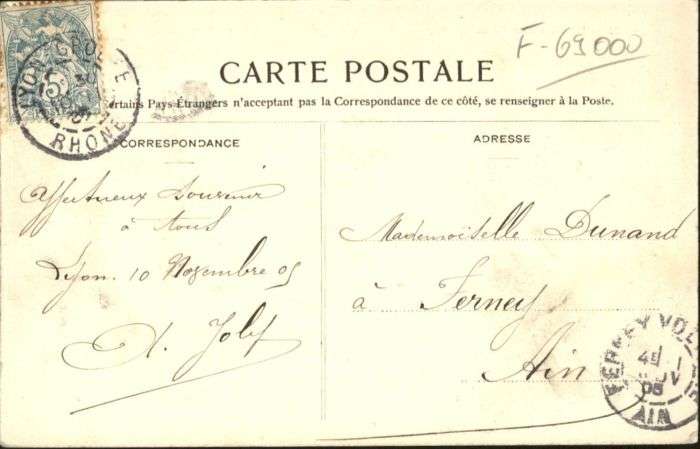 F-69000
CARTE POSTALE
ertains Pays Étrangers n'acceptent pas la Correspondance de ce côté, se renseigner à la Poste.
CORRESPONDANCE
Affectueux souvenir
à tous
Lyon. 10 Novembre 05
ADRESSE
Mademoiselle Dunand
à Ferney
Ain
RHONE
FERNEY VO
05
AIN